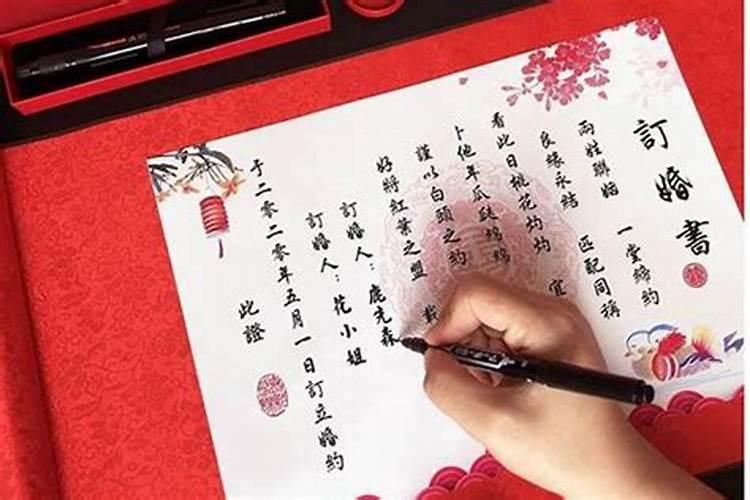 訂婚書
兩姓聯姻 一堂締約
良緣永結 匹配同稱
看此日桃花灼灼 宜
卜他年瓜瓞綿綿
謹以白頭之約
好將紅葉之盟 載
訂婚人：鹿先森
訂婚人：花小姐
于二零二零年五月一日訂立婚約
此證